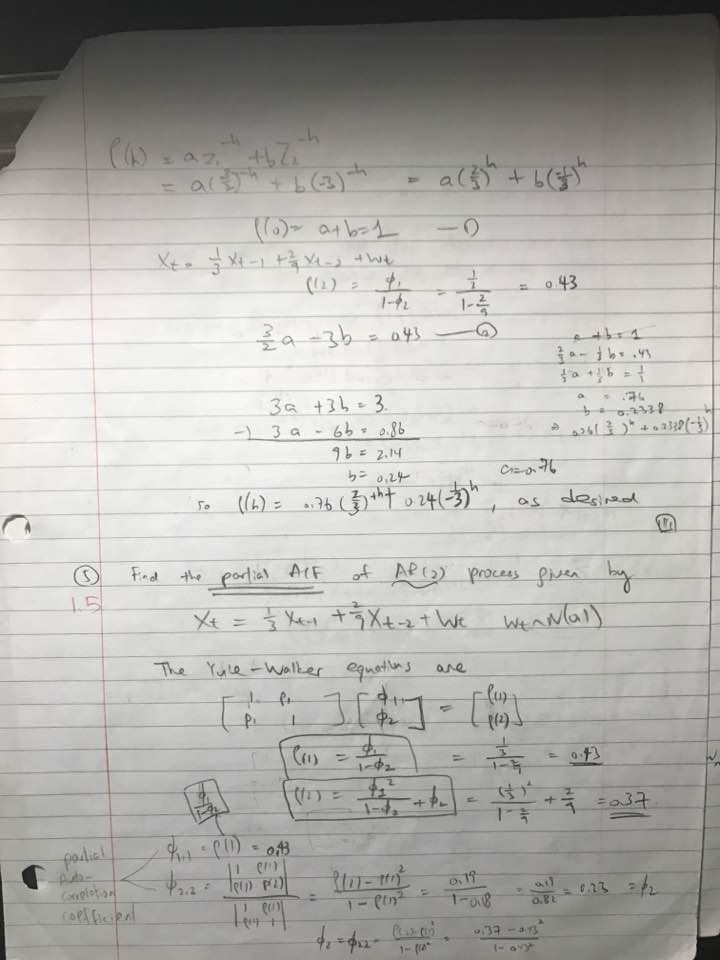 ρ(h) = a z₁^-h + b z₂^-h
= a(3/2)^-h + b(-3)^-h = a(2/3)^h + b(-1/3)^h
ρ(0) = a+b = 1 — ①
Xt = 1/3 Xt-1 + 2/9 Xt-2 + Wt
ρ(2) = ϕ₁/(1-ϕ₂) = (1/3)/(1-2/9) = 0.43
3/2 a - 3b = 0.43 — ②
a + b = 1
2/3 a - 1/3 b = .43
1/3 a + 1/3 b = 1/3
a = .76
b = 0.2338
⇒ 0.76(2/3)^h + 0.2338(-1/3)^h
3a + 3b = 3.
-) 3a - 6b = 0.86
9b = 2.14
b = 0.24
a = 0.76
so ρ(h) = 0.76 (2/3)^+h + 0.24(-1/3)^h, as desired
⑤ Find the partial ACF of AR(2) process given by
1.5
Xt = 1/3 Xt-1 + 2/9 Xt-2 + Wt Wt ~ N(0,1)
The Yule-Walker equations are
[1 ρ₁; ρ₁ 1] [ϕ₁; ϕ₂] = [ρ(1); ρ(2)]
ρ(1) = ϕ₁/(1-ϕ₂) = (1/3)/(1-2/9) = 0.43
ρ(2) = ϕ₁²/(1-ϕ₂) + ϕ₂ = (1/3)²/(1-2/9) + 2/9 = 0.37
ϕ₁/(1-ϕ₂)
partial
auto-
correlation
coefficient
ϕ₁,₁ = ρ(1) = 0.43
ϕ₂,₂ = |1 ρ(1); ρ(1) ρ(2)| / |1 ρ(1); ρ(1) 1| = (ρ(2) - ρ(1)²)/(1 - ρ(1)²) = 0.19/(1-0.18) = 0.19/0.82 = 0.23 = ϕ₂
ϕ₂ = ϕ₂₂ = (ρ(2)-ρ(1)²)/(1-ρ(1)²) = (0.37 - 0.43²)/(1-0.43²)